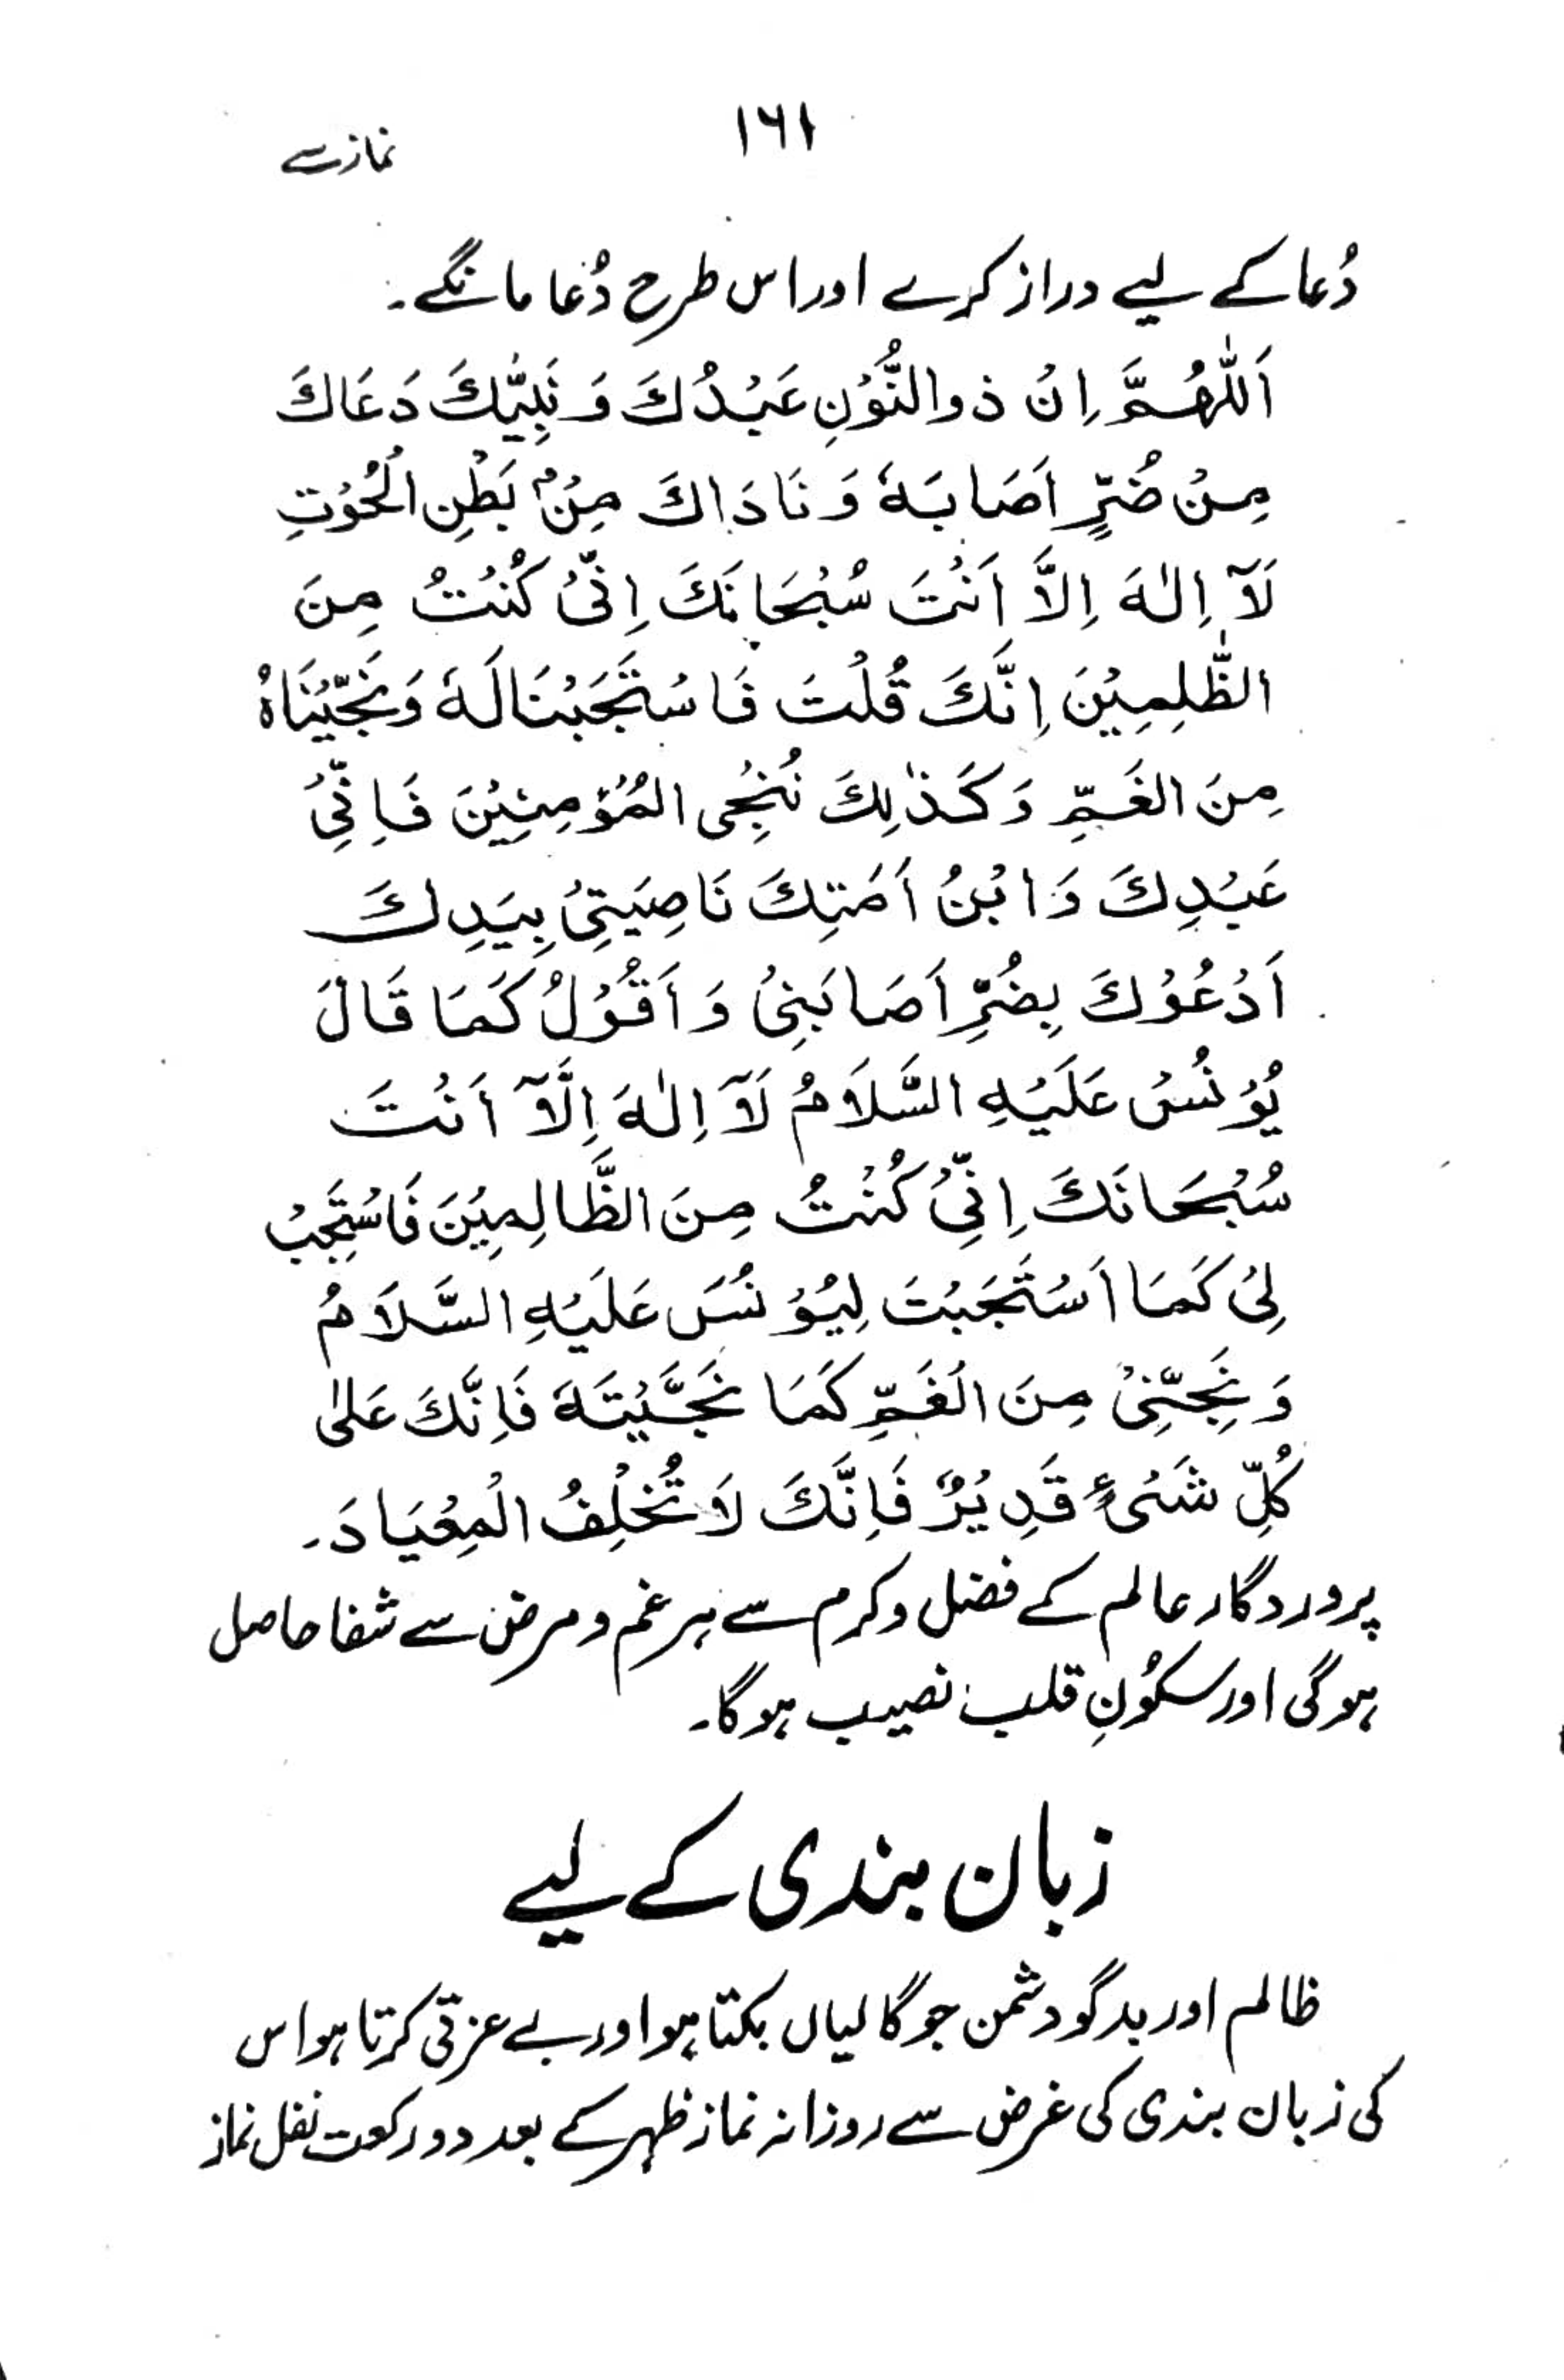 ۱۶۱
نماز سے
دُعا کے لیے دراز کرے اور اس طرح دُعا مانگے۔
اَللّٰهُمَّ اِنْ ذوالنُّوْنِ عَبْدُكَ وَ نَبِیُّكَ دَعَاكَ
مِنْ ضُرٍّ اَصَابَهٗ وَ نَادَاكَ مِنْۢ بَطْنِ الْحُوْتِ
لَآ اِلٰهَ اِلَّا اَنْتَ سُبْحَانَكَ اِنِّیْ كُنْتُ مِنَ
الظّٰلِمِیْنَ اِنَّكَ قُلْتَ فَاسْتَجَبْنَا لَهٗ وَنَجَّیْنَاهُ
مِنَ الغَمِّ وَكَذٰلِكَ نُنْجِی المُؤْمِنِیْنَ فَاِنِّیْ
عَبْدِكَ وَابْنُ اَمَتِكَ نَاصِیَتِیْ بِیَدِكَ
اَدْعُوْكَ بِضُرٍّ اَصَابَنِیْ وَ اَقُوْلُ كَمَا قَالَ
یُوْنُسُ عَلَیْهِ السَّلَامُ لَآ اِلٰهَ اِلَّآ اَنْتَ
سُبْحَانَكَ اِنِّیْ كُنْتُ مِنَ الظَّالِمِیْنَ فَاسْتَجِبْ
لِیْ كَمَا اَسْتَجَبْتَ لِیُوْنُسَ عَلَیْهِ السَّلَامُ
وَ نَجِّنِیْ مِنَ الْغَمِّ كَمَا نَجَّیْتَهٗ فَاِنَّكَ عَلٰی
كُلِّ شَیْءٍ قَدِیْرٌ فَاِنَّكَ لَا تُخْلِفُ الْمِعْیَادَ۔
پروردگار عالم کے فضل و کرم سے ہر غم و مرض سے شفا حاصل
ہوگی اور سکُونِ قلب نصیب ہوگا۔
زبان بندی کے لیے
ظالم اور بدگو دشمن جو گالیاں بکتا ہو اور بے عزتی کرتا ہو اس
کی زبان بندی کی غرض سے روزانہ نماز ظہر کے بعد دو رکعت نفل نماز